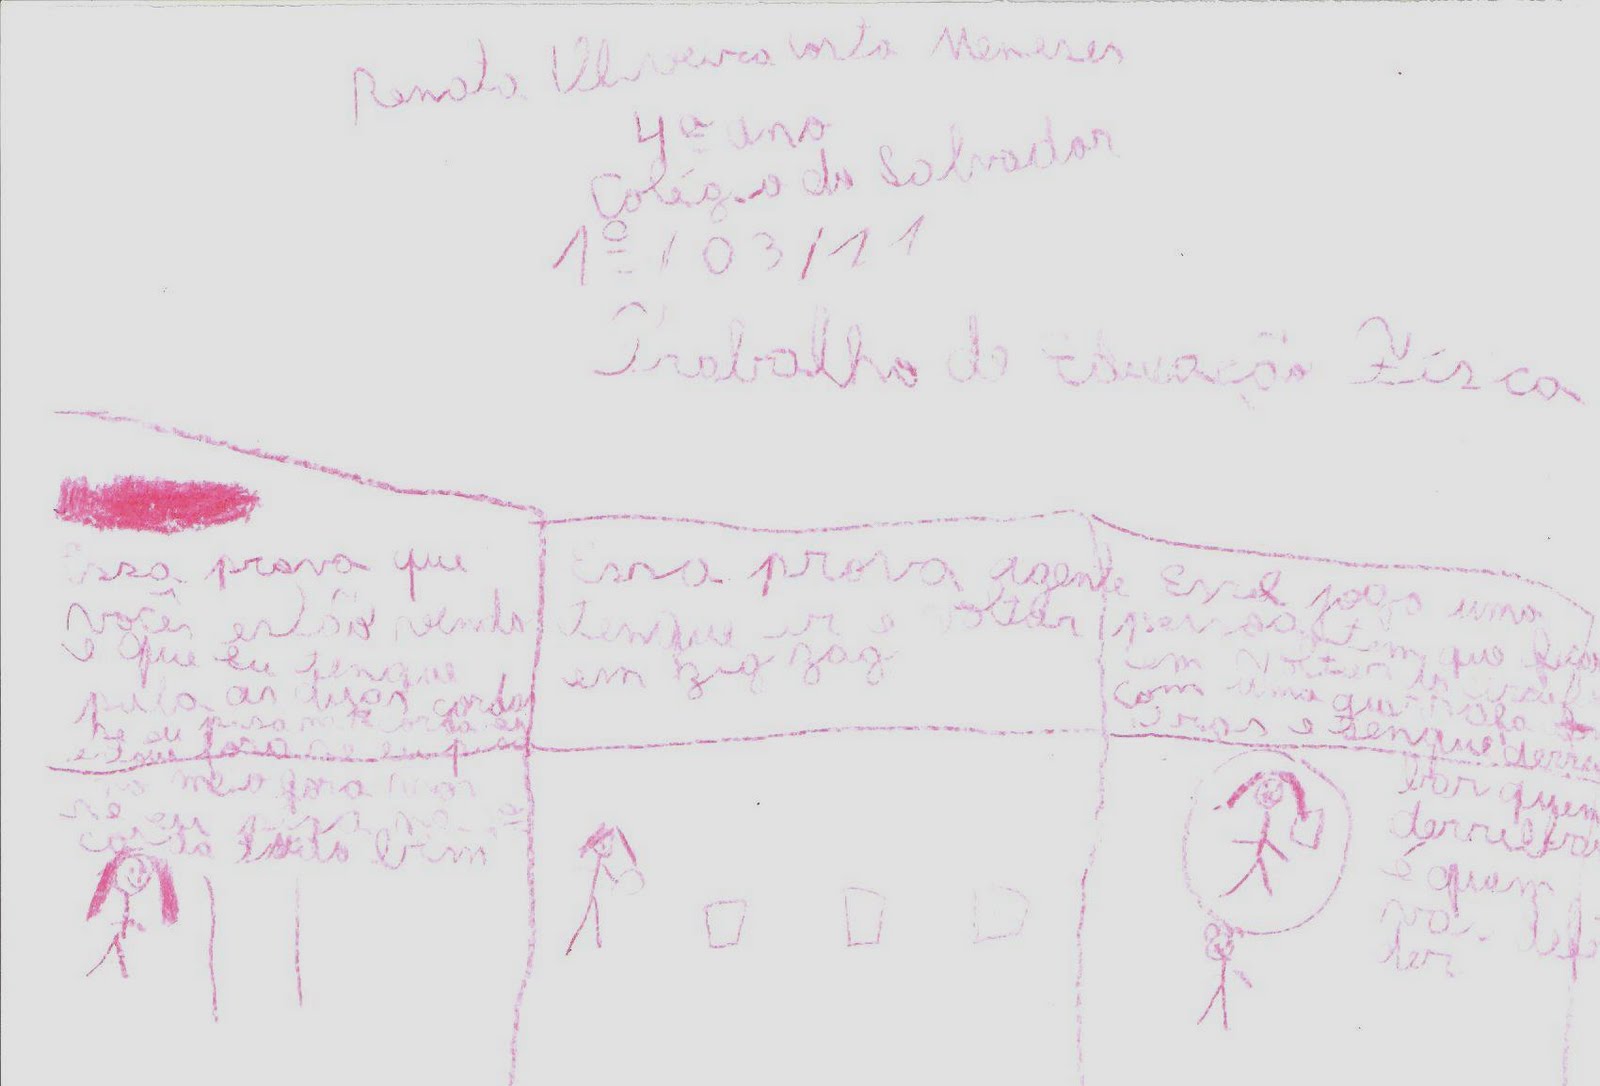 Renata Oliveira Costa Menezes
4º ano
Colégio do Salvador
1º / 03 / 11
Trabalho de Educação Física
Essa prova que
vocês estão vendo
é que eu tenque
pula as duas cordas
se eu pisa na corda eu
no meio fora mas
se eu
corda tudo bem
Essa prova agente
tenque ir e voltar
em zig zag
Esse jogo uma
pessoa tem que ficar
em
com uma garrafa
tras e tenque derru
bar quem
derruba
é quem
va
ter